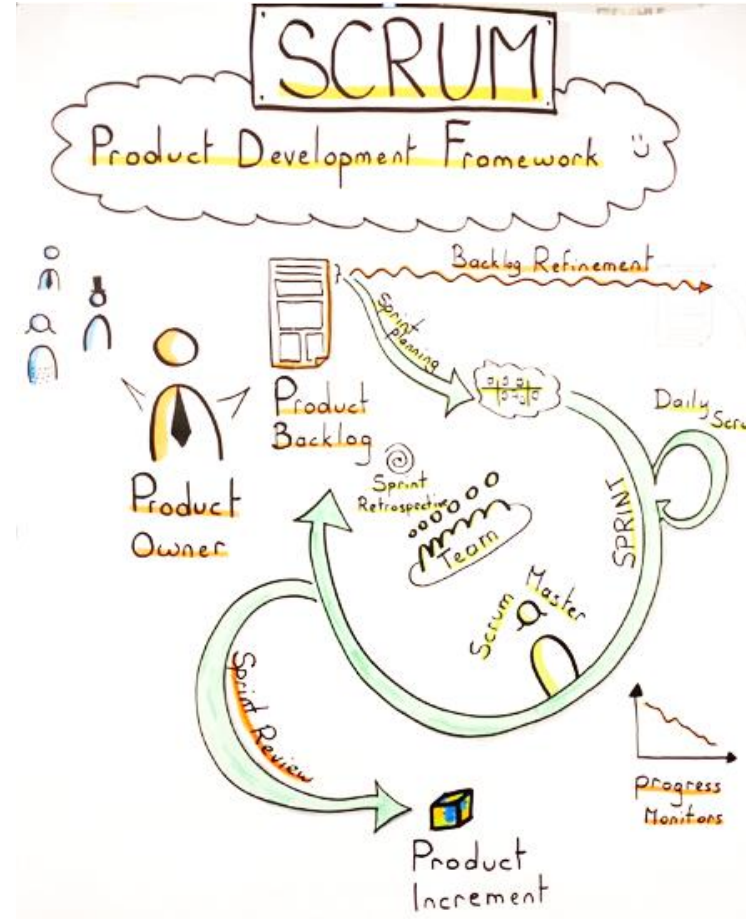 SCRUM
Product Development Framework
Backlog Refinement
Sprint
planning
Product
Backlog
Daily
Sprint
Retrospective
SPRINT
Product
Owner
Team
Scrum Master
Sprint Review
progress
Monitors
Product
Increment